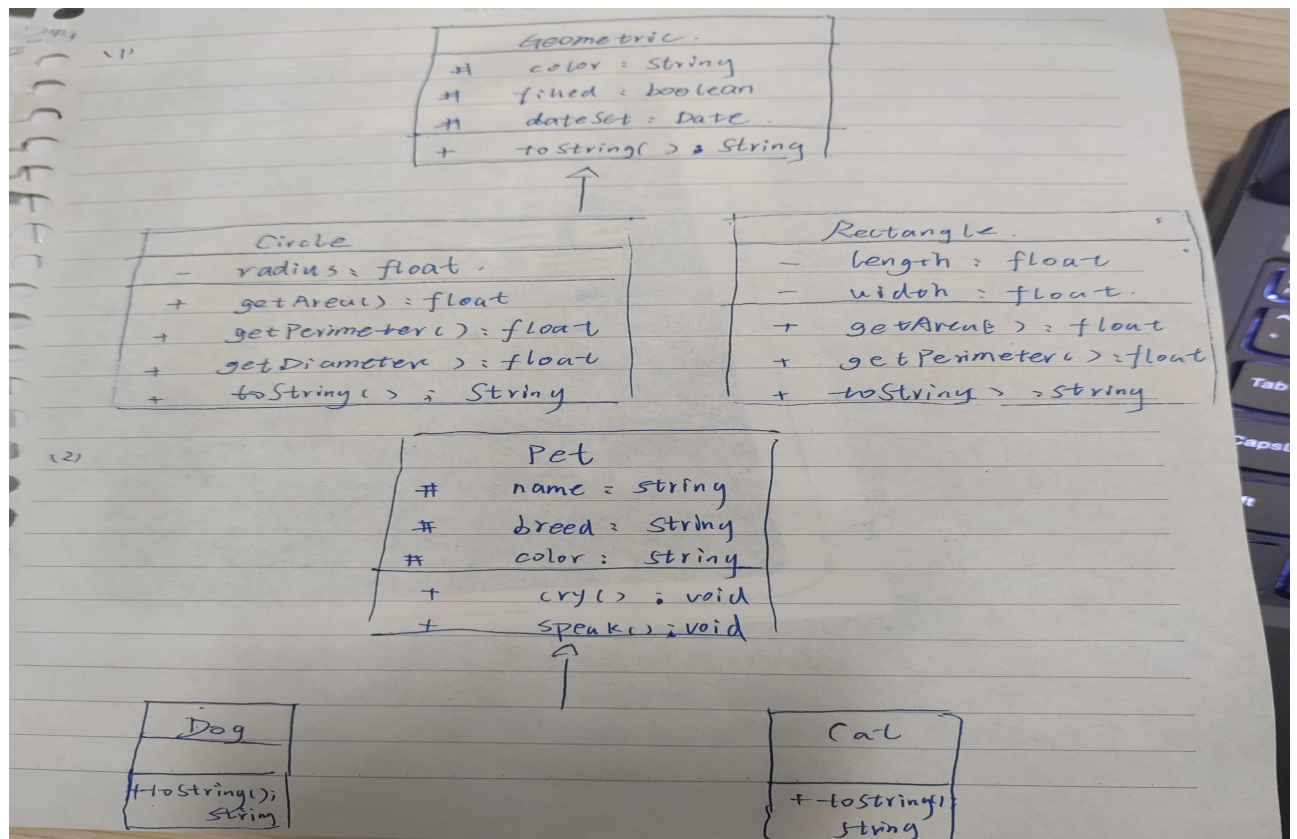 (1)
Geometric.
# color : String
# filled : boolean
# dateSet : Date.
+ toString( ) : String
Circle
- radius : float.
+ getArea() : float
+ getPerimeter() : float
+ getDiameter( ) : float
+ toString( ) : String
Rectangle.
- length : float
- width : float.
+ getArea( ) : float
+ getPerimeter( ) : float
+ toString( ) : String
(2)
Pet
# name : string
# breed : string
# color : string
+ cry() : void
+ speak() : void
Dog
+toString();
string
Cat
+ toString();
string
Tab